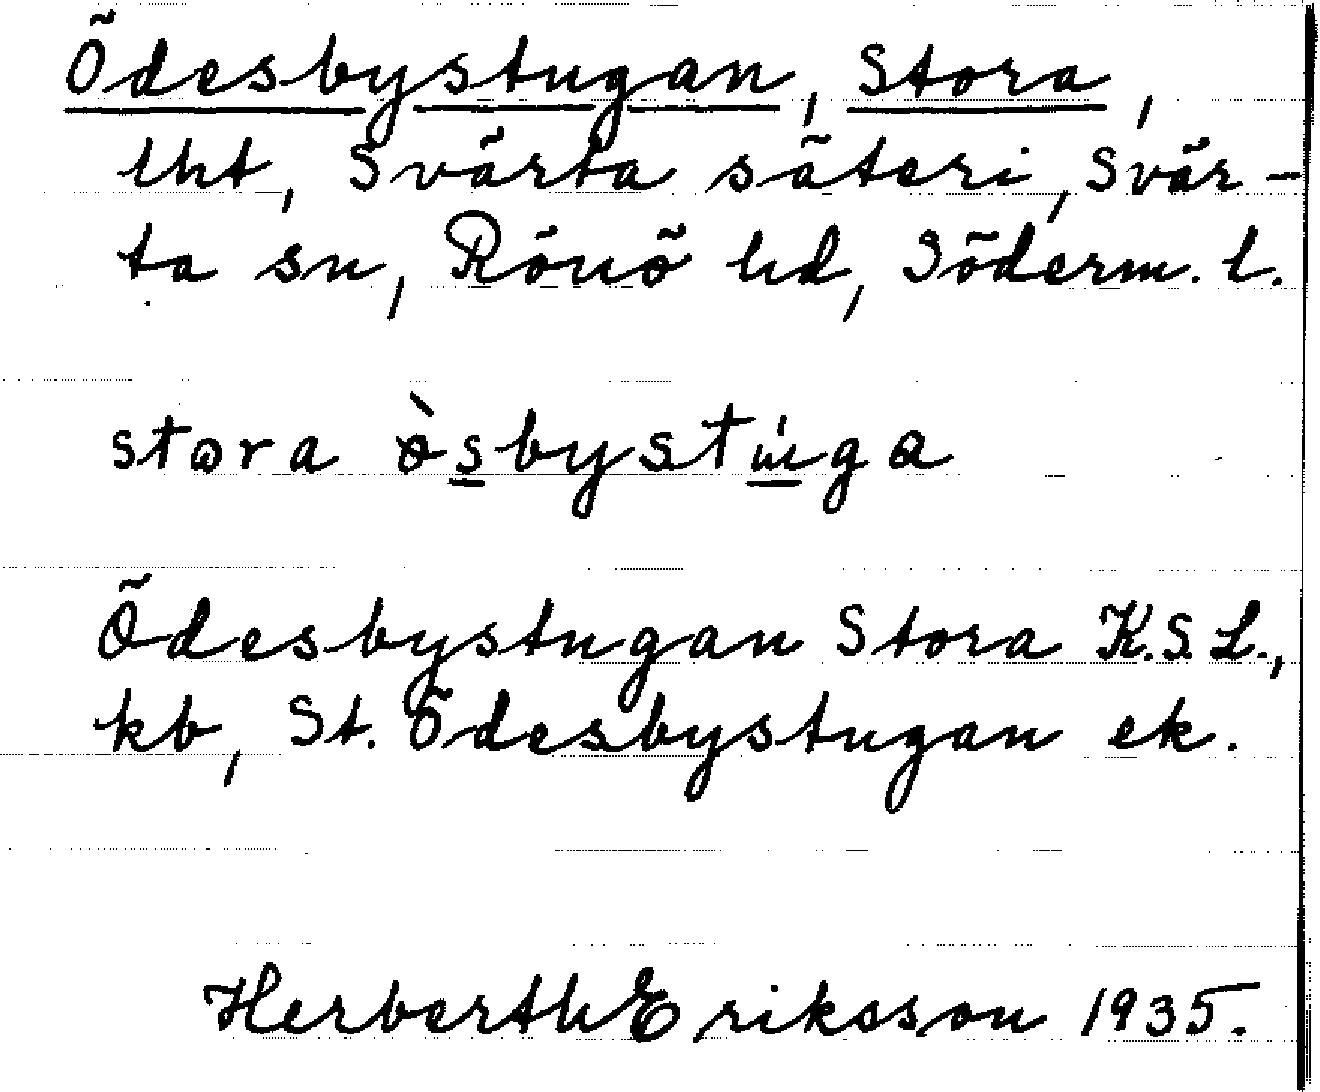 Ödesbystugan, Stora,
lht, Svärta säteri, Svär-
ta sn, Rönö hd, Söderm. l.
stora
Ödesbystugan Stora K.S.L.,
kb, St. Ödesbystugan ek.
Herberth Eriksson 1935.